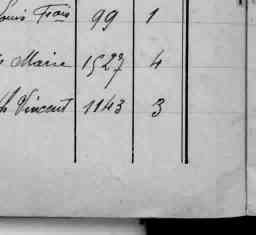 Louis Frois 99 1
Marie 1527 4
h Vincent 1143 3